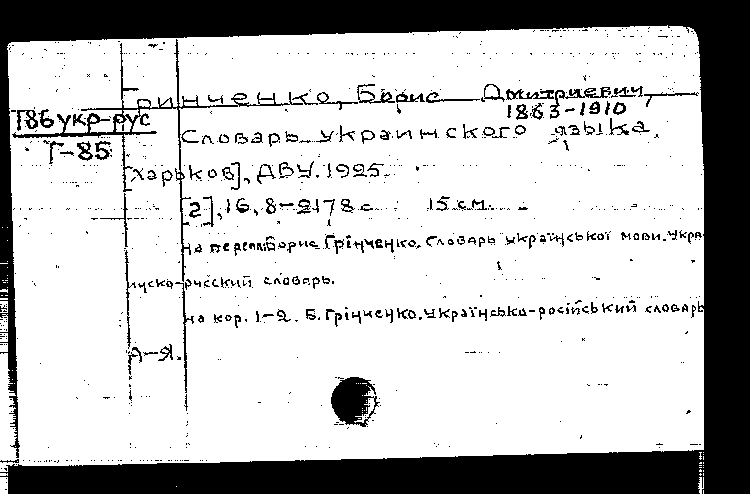 Гринченко, Борис Дмитриевич,
1863-1910
Т86 укр-рус
Г-85
Словарь украинского языка.
[Харьков], ДВУ. 1925.
[2], 16, 8-2178 с. 15 см.
На переп. Борис Грінченко. Словарь української мови. Укра-
инско-русский словарь.
На кор. 1-2. Б. Грінченко. Українсько-російський словарь
А-Я.